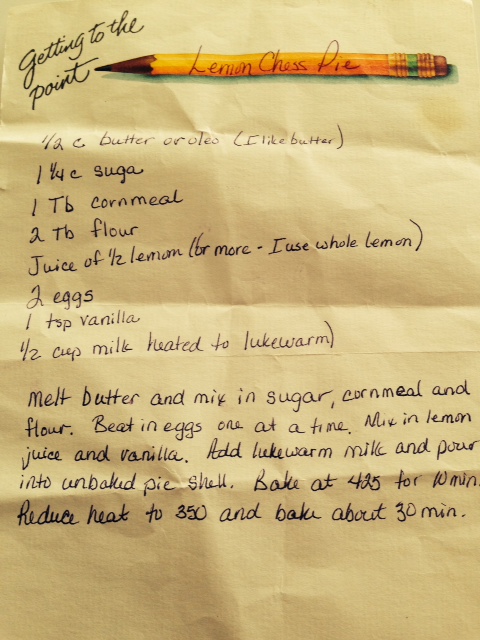 Getting to the
point
Lemon Chess Pie
1/2 c butter or oleo (I like butter)
1 1/4 c suga
1 Tb cornmeal
2 Tb flour
Juice of 1/2 lemon (or more - I use whole lemon)
2 eggs
1 tsp vanilla
1/2 cup milk heated to lukewarm)
Melt butter and mix in sugar, cornmeal and
flour. Beat in eggs one at a time. Mix in lemon
juice and vanilla. Add lukewarm milk and pour
into unbaked pie shell. Bake at 425 for 10 min.
Reduce heat to 350 and bake about 30 min.